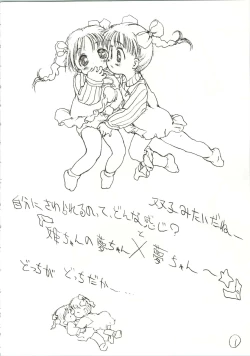 双子みたいだね〜
自分にさわられるのって、どんな感じ?
雅ちゃんの夢ちゃんと×夢ちゃん〜
どっちが どっちだか〜…
1